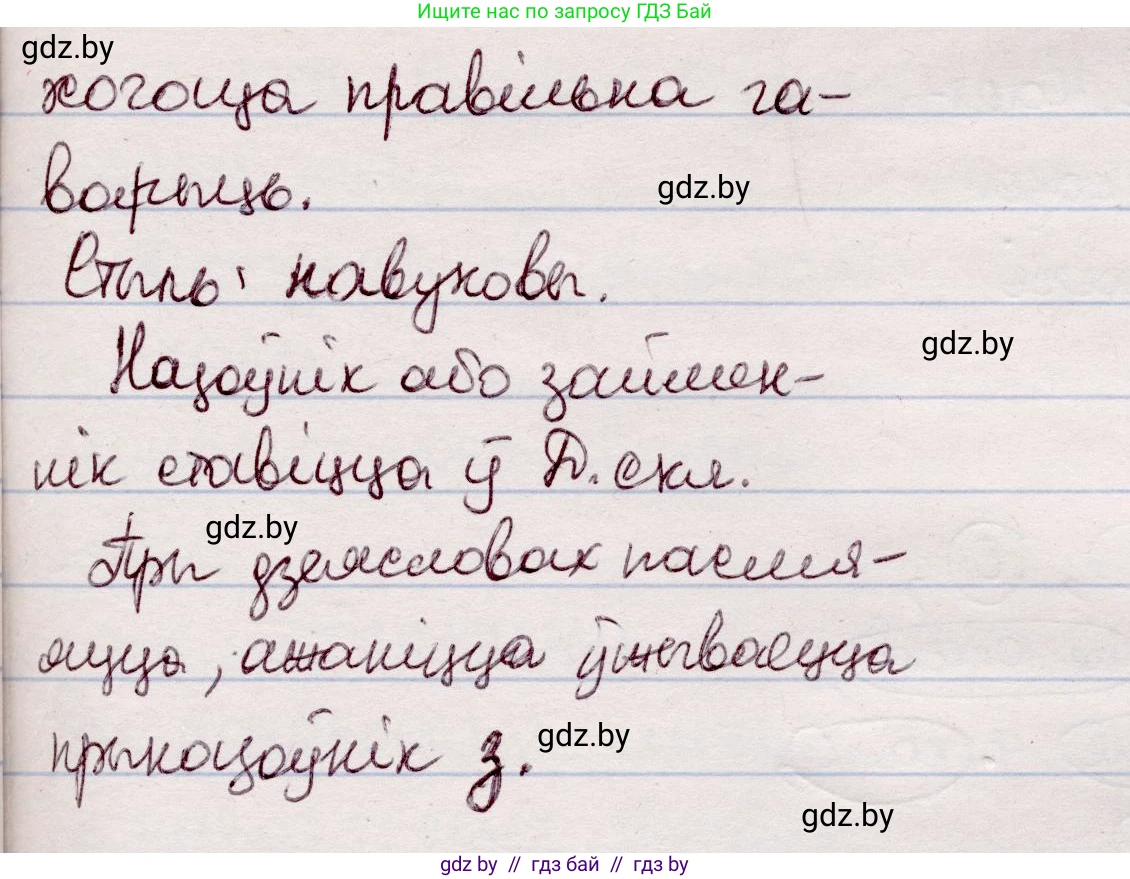 Ищите нас по запросу ГДЗ Бай
gdz.by
хогоцца правільна га-
варыць.
gdz.by
Стыль: навуковы.
Назоўнік або займен-
gdz.by
нік ставіцца ў Д. скл.
gdz.by
Пры дзеясловах насмя-
яцца, ажаніцца ўжываецца
прыназоўнік з.
gdz.by
gdz.by
gdz.by // гдз бай // гдз by